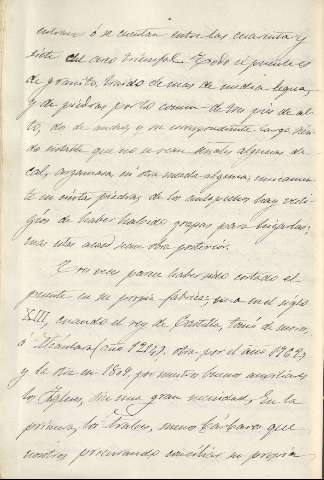 entran ó se cuentan entre las cuarenta y
siete del arco triunfal. Todo el puente es
de granito traido de mas de media legua,
y de piedras por lo comun de tres pies de al-
to, dos de ancho, y su correspondiente largo, sien-
do notable que no se vean señales algunas de
cal, argamasa ni otra mezcla alguna; unicamen-
te en ciertas piedras de los antepechos hay vesti-
gios de haber habido grapas para ligarlas;
mas estas acaso sean obra posterior.
Tres veces parece haber sido cortado el
puente en su propia fábrica; una en el siglo
XIII, cuando el rey de Castilla, tomó de moros
á Alcantara (año 1214); otra por el año 1762,
y la otra en 1809, por nuestros buenos auxiliares
los Ingleses, sin una gran necesidad. En la
primera, los Arabes, menos bárbaros que
nosotros procurando conciliar su propia